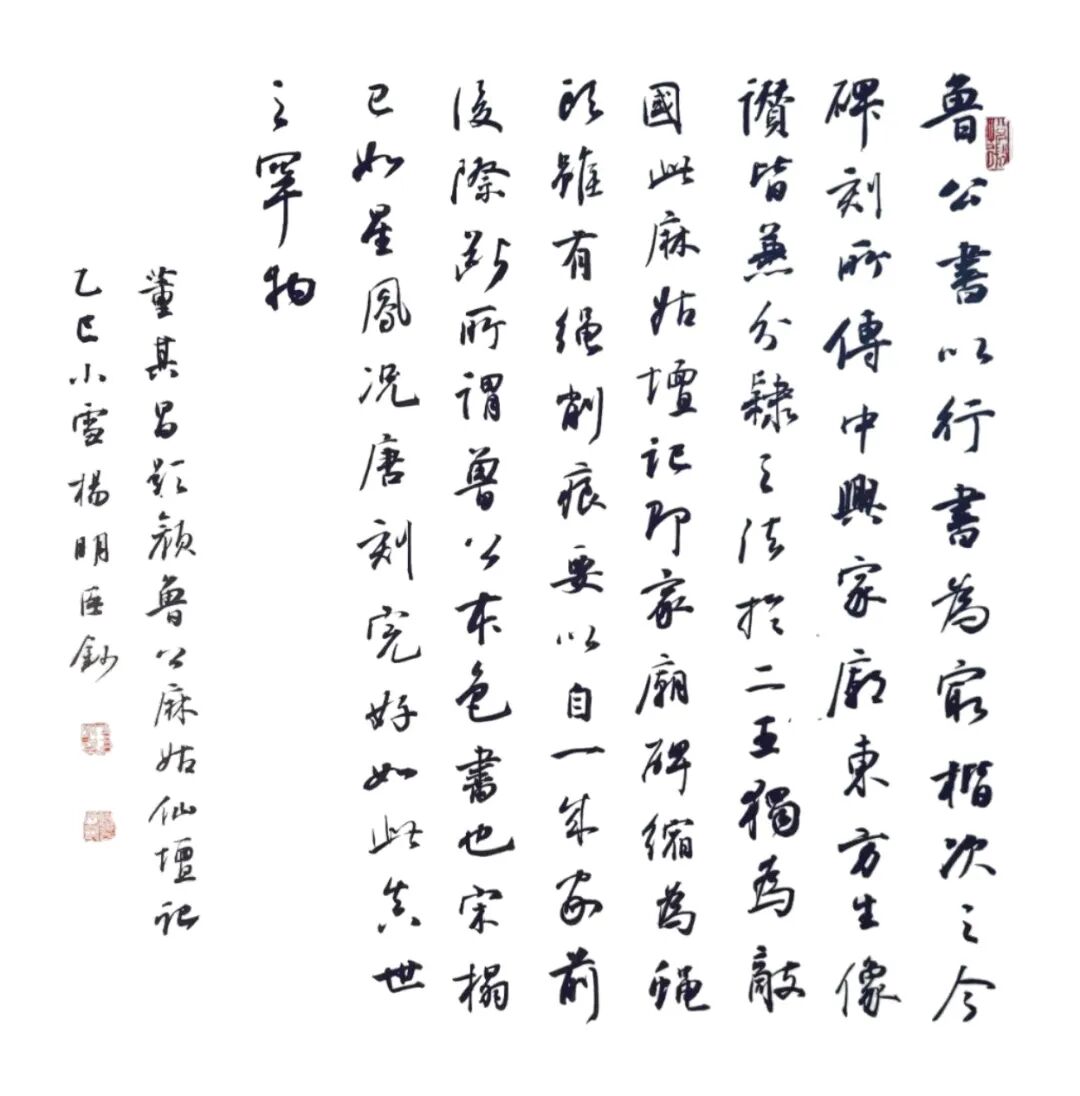 魯公書以行書為㝡楷次之今
碑刻所傳中興家廟東方生像
讚皆兼分隸之法於二王獨為敵
國此麻姑壇記即家廟碑縮為蠅
頭雖有繩削痕要以自一成家前
後際斷所謂魯公本色書也宋榻
已如星鳳況唐刻完好如此真世
之罕物
董其昌題顏魯公麻姑仙壇記
乙巳小雪楊明臣鈔